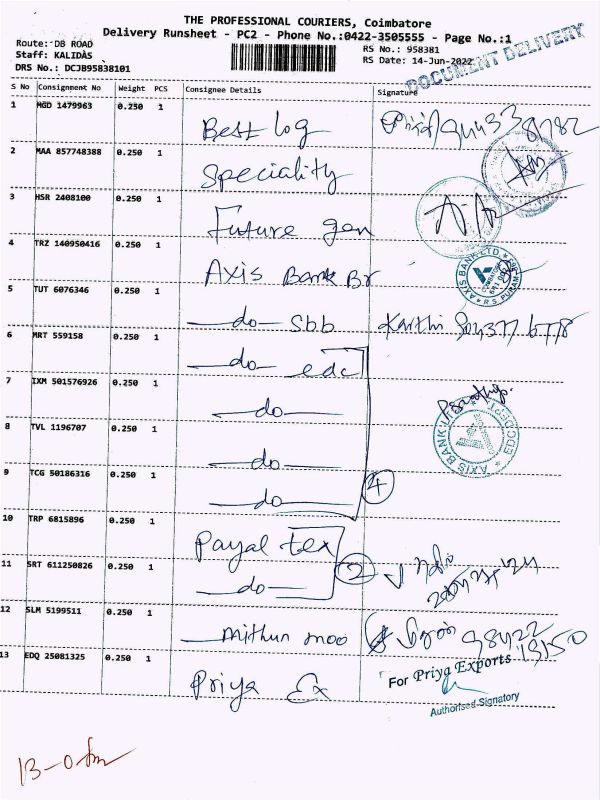 THE PROFESSIONAL COURIERS, Coimbatore
Delivery Runsheet - PC2 - Phone No.:0422-3505555 - Page No.:1
Route: DB ROAD
RS No.: 958381
Staff: KALIDAS
RS Date: 14-Jun-2022
DRS No.: DCJB95838101
DOCUMENT DELIVERY
S No Consignment No Weight PCS Consignee Details Signature
1 MGD 1479963 0.250 1 Best log
2 MAA 857748388 0.250 1 Speciality
3 HSR 2408100 0.250 1 Future gen
4 TRZ 140950416 0.250 1 Axis Bank Br
AXIS BANK LTD. R.S. PURAM
5 TUT 6076346 0.250 1 —do— Sbb Karthi
6 MRT 559158 0.250 1 —do— edc
7 IXM 501576926 0.250 1 —do—
8 TVL 1196707 0.250 1 —do—
AXIS BANK LTD EDC DEPT
9 TCG 50186316 0.250 1 —do— 4
10 TRP 6815896 0.250 1 Payal tex
11 SRT 611250826 0.250 1 —do— 2
12 SLM 5199511 0.250 1 Mithun moo 98422 13150
13 EDQ 25081325 0.250 1 Priya Ex
For Priya Exports
Authorised Signatory